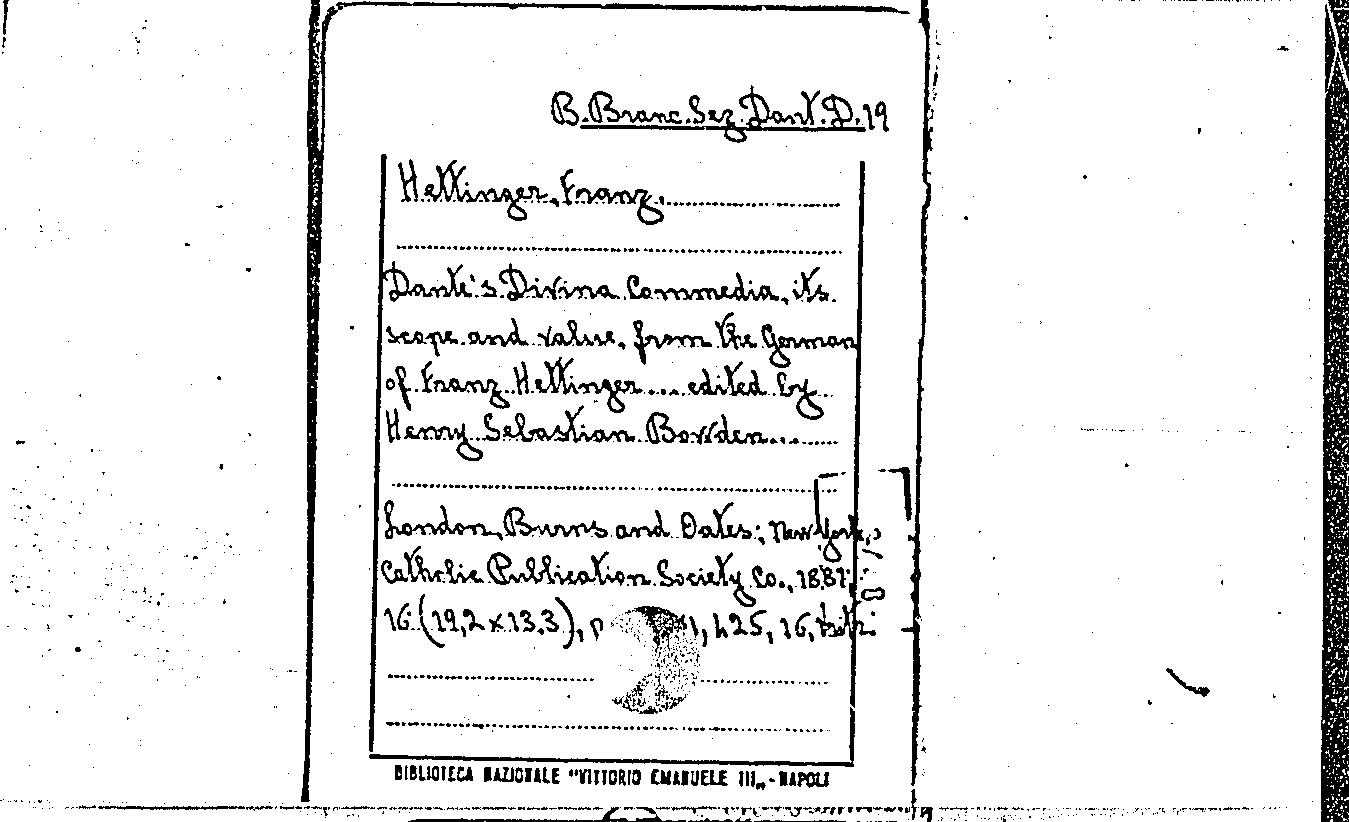 B. Branc. Sez. Dant. D. 19
Hettinger, Franz.
Dante's Divina Commedia, its
scope and value, from the German
of Franz Hettinger ... edited by
Henry Sebastian Bowden...
London, Burns and Oates; New York,
Catholic Publication Society Co., 1887;
16 (19,2 x 13.3), p , 425, 16,
BIBLIOTECA NAZIONALE "VITTORIO EMANUELE III„ - NAPOLI